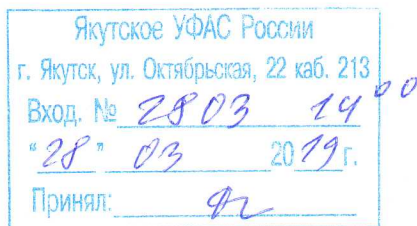 Якутское УФАС России
г. Якутск, ул. Октябрьская, 22 каб. 213
Вход. № 2803 14⁰⁰
"28" 03 2019 г.
Принял: